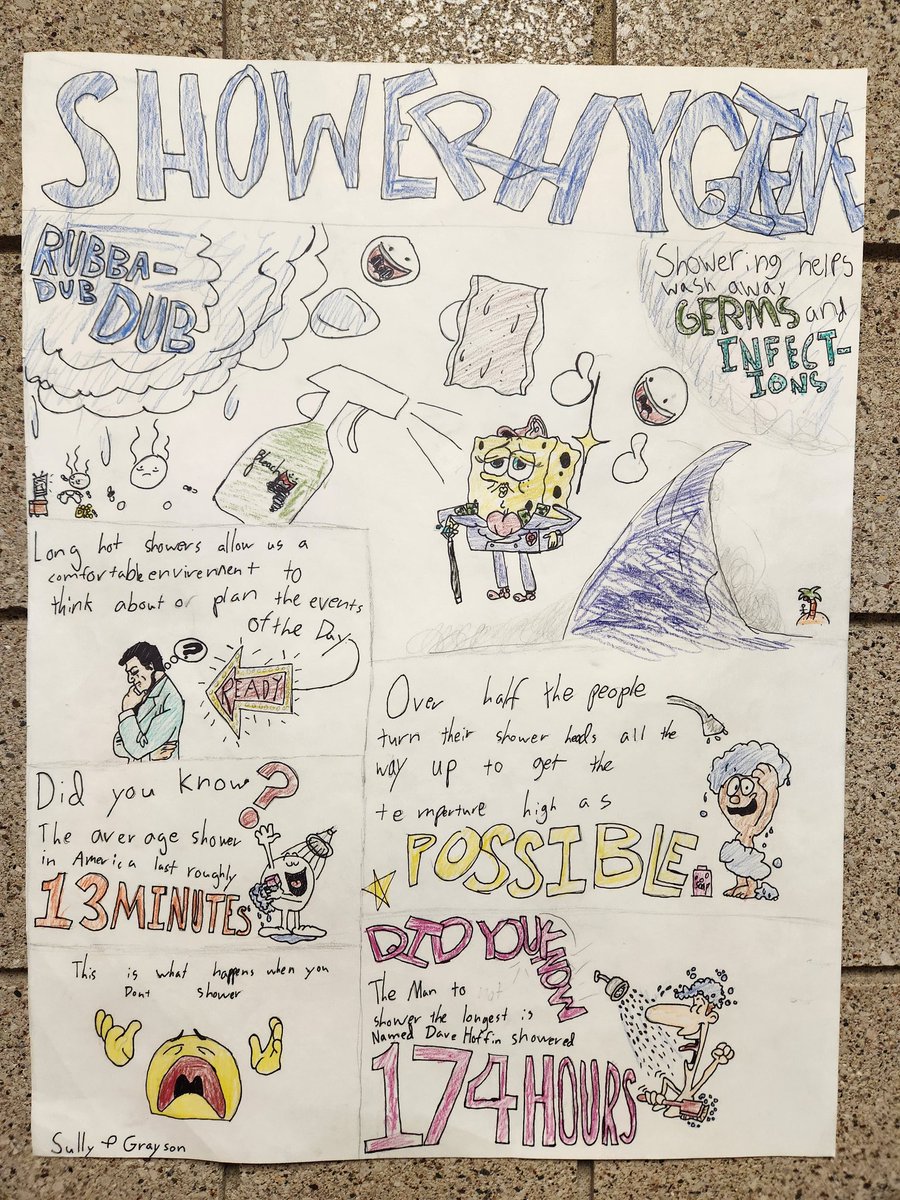 SHOWER HYGIENE
RUBBA-
DUB DUB
Showering helps
wash away
GERMS and
INFECT-
IONS
Bleach
Long hot showers allow us a
comfortable envirenment to
think about or plan the events
of the Day
?
READY
Over half the people
turn their shower heads all the
way up to get the
temparture high as
POSSIBLE
Did you know?
The average shower
in America last roughly
13 MINUTES
DID YOU KNOW
The Man to
shower the longest is
Named Dave Hoffin showered
174 HOURS
This is what happens when you
Dont shower
Sully & Grayson